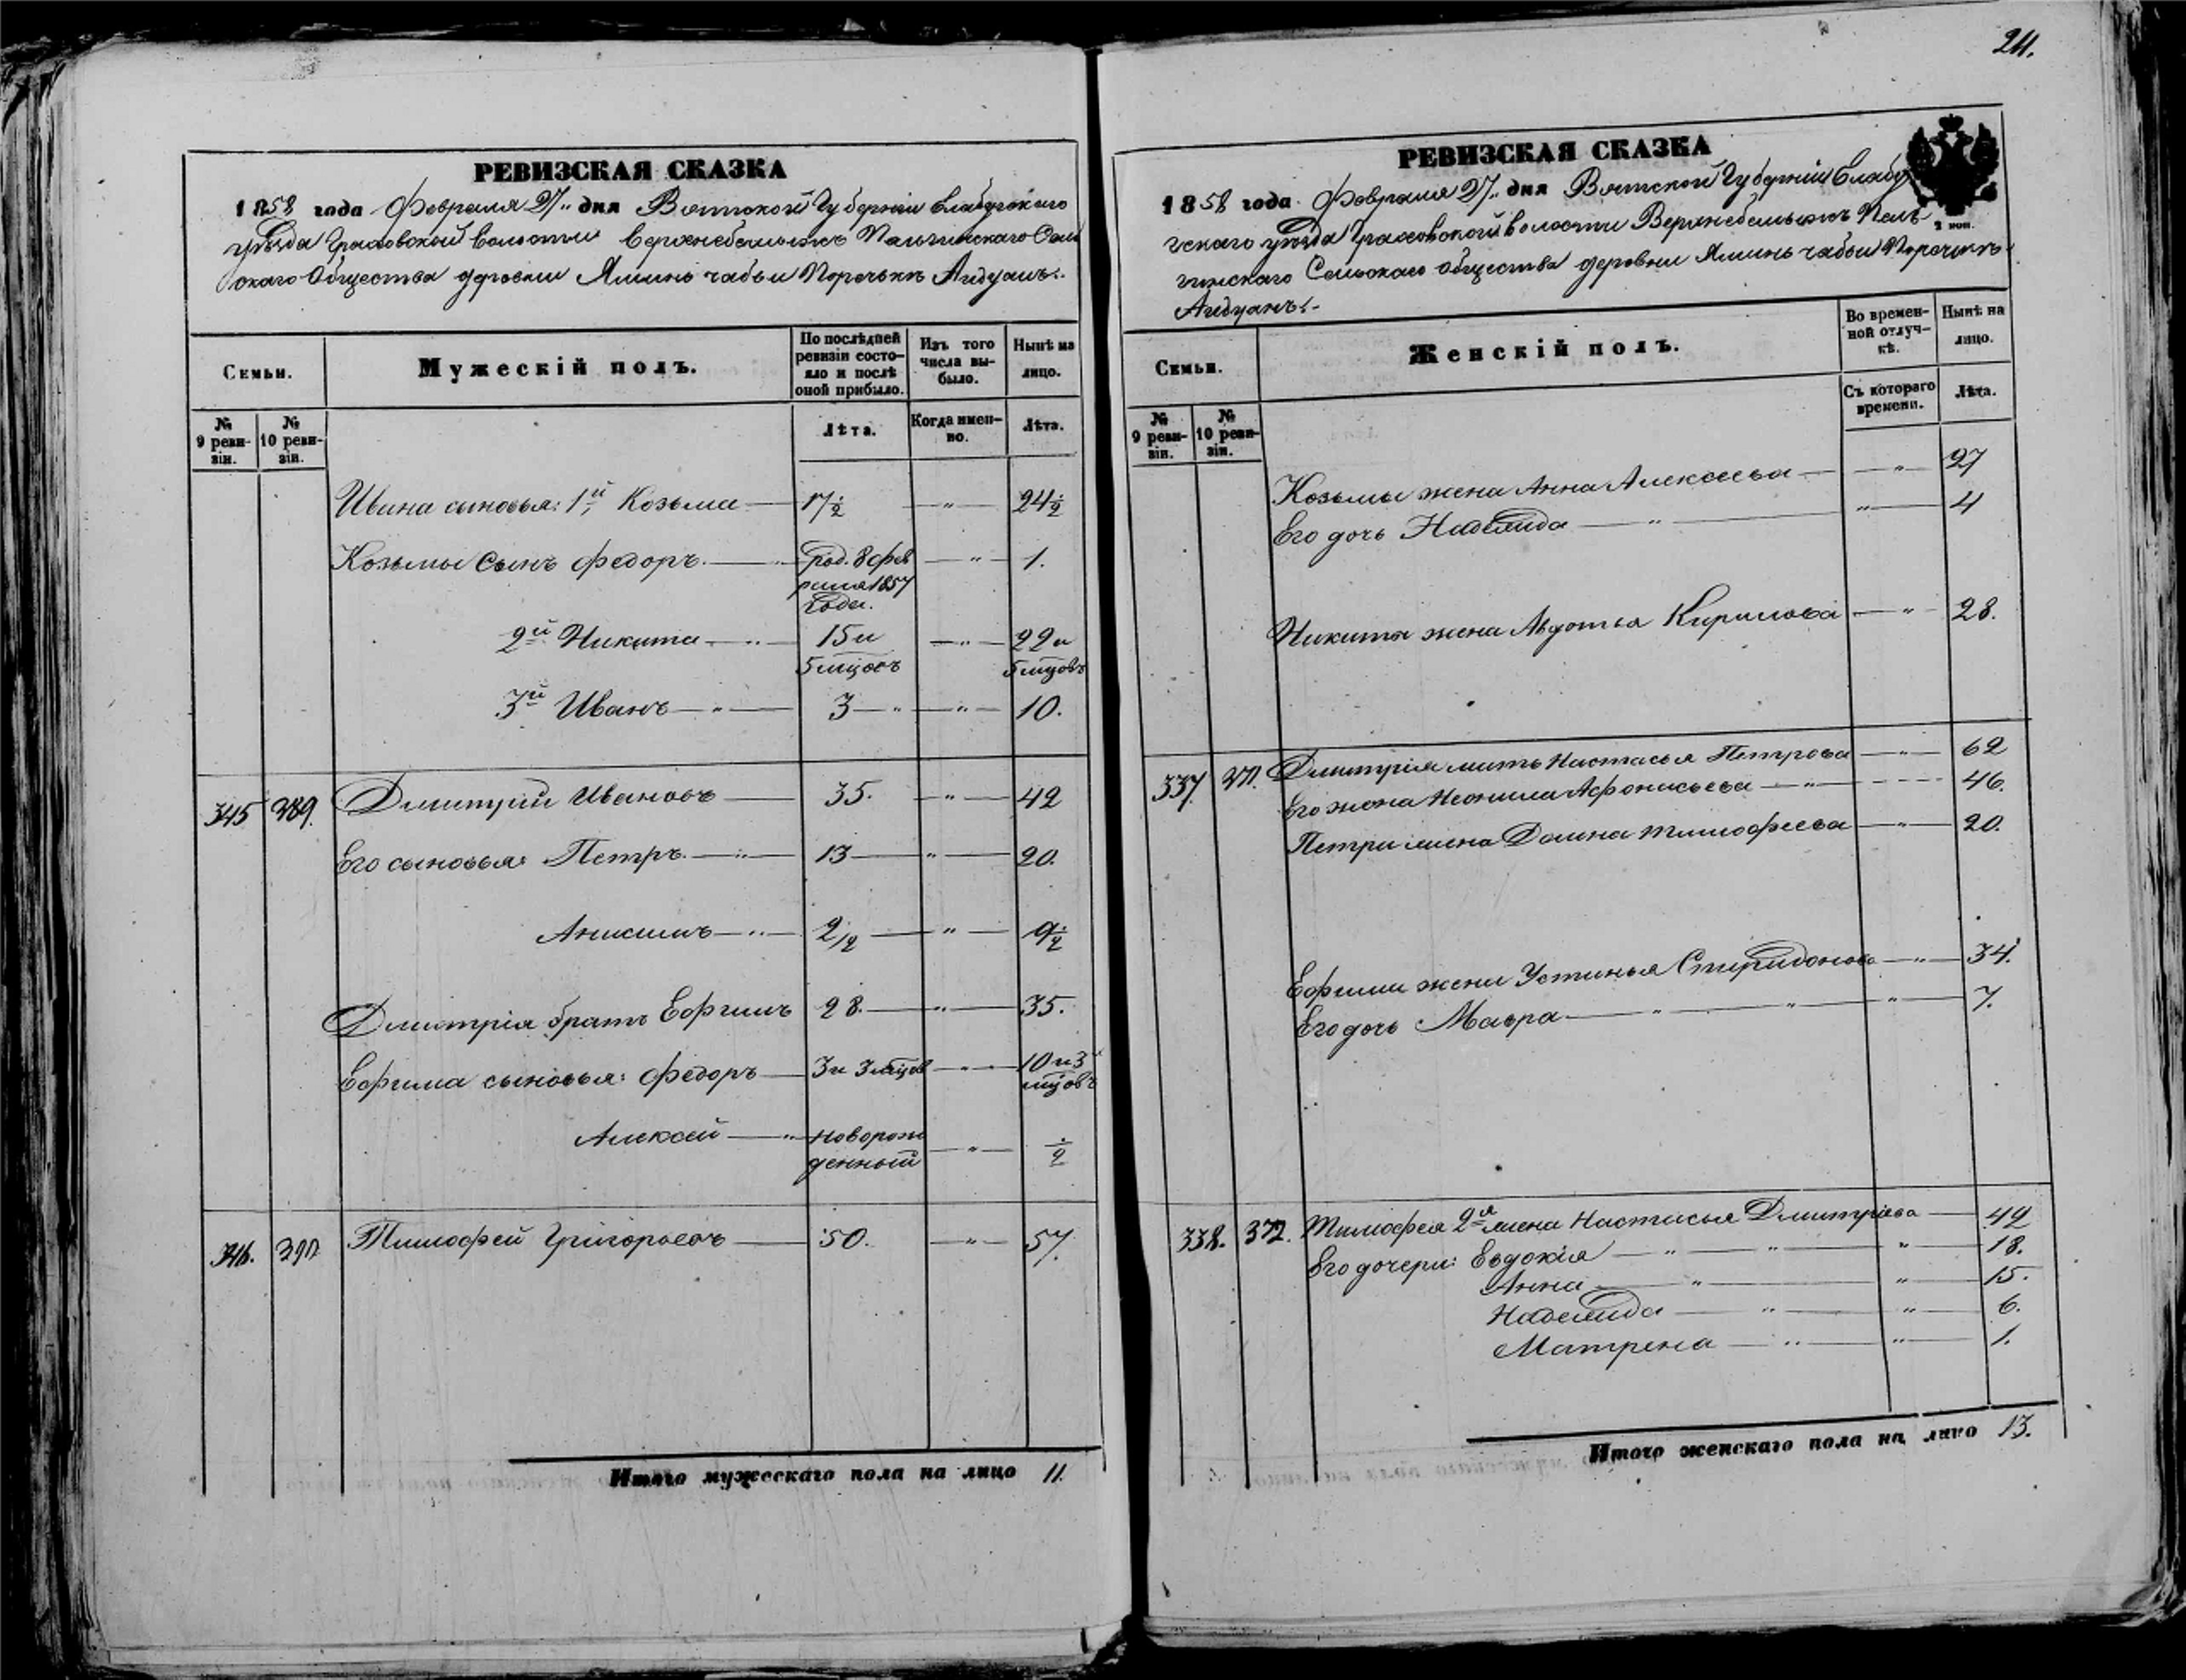 РЕВИЗСКАЯ СКАЗКА
1858 года Февраля 27 дня Вятской Губерніи Елабугскаго
уѣзда Граховской волости Пельгинскаго Сель
скаго Общества деревни Ягмино чабьи Поречькѣ Айдуанъ.
Семьи.
Мужескій полъ.
По послѣдней ревизіи состояло и послѣ оной прибыло.
Изъ того числа выбыло.
Нынѣ на лицо.
№ 9 ревизіи.
№ 10 ревизіи.
Лѣта.
Когда именно.
Лѣта.
Ивана сыновья: 1й Козьма 17½ 24½
Козьмы сынъ Федоръ род. 8 фев 1.
раля 1857
года.
2й Никита 15 и 22 и
5 мцовъ 5 мцовъ
3й Иванъ 3 10.
345 389. Дмитрий Ивановъ 35. 42
Его сыновья: Петръ 13 20.
Анисимъ 2½ 9½
Дмитрія братъ Ефимъ 28. 35.
Ефима сыновья: Федоръ 3 и 3 мцов 10 и 3
мцовъ
Алексей новорож
денный ½
346. 390 Тимофей Григорьевъ 50. 57.
Итого мужескаго пола на лицо 11.
211.
РЕВИЗСКАЯ СКАЗКА
1858 года Февраля 27 дня Вятской Губерніи Елабу
гскаго уѣзда Граховской волости Пель
гинскаго Сельскаго общества деревни чабьи Поречькѣ
Айдуанъ.
Семьи.
Женскій полъ.
Во временной отлучкѣ.
Нынѣ на лицо.
№ 9 ревизіи.
№ 10 ревизіи.
Съ котораго времени.
Лѣта.
Козьмы жена Анна Алексеева 27
Его дочь Надежда 4
Никиты жена Авдотья Кирилова 28.
337. 371. Дмитрія мать Настасья Петрова 62
Его жена Неонила Афонасьева 46.
Петра жена Домна Тимофеева 20.
Ефима жена Устинья Спиридонова 34.
Его дочь Мавра 7.
338. 372. Тимофея 2я жена Настасья Дмитріева 42
Его дочери: Евдокія 18.
Анна 15.
Надежда 6.
Матрена 1.
Итого женскаго пола на лицо 13.